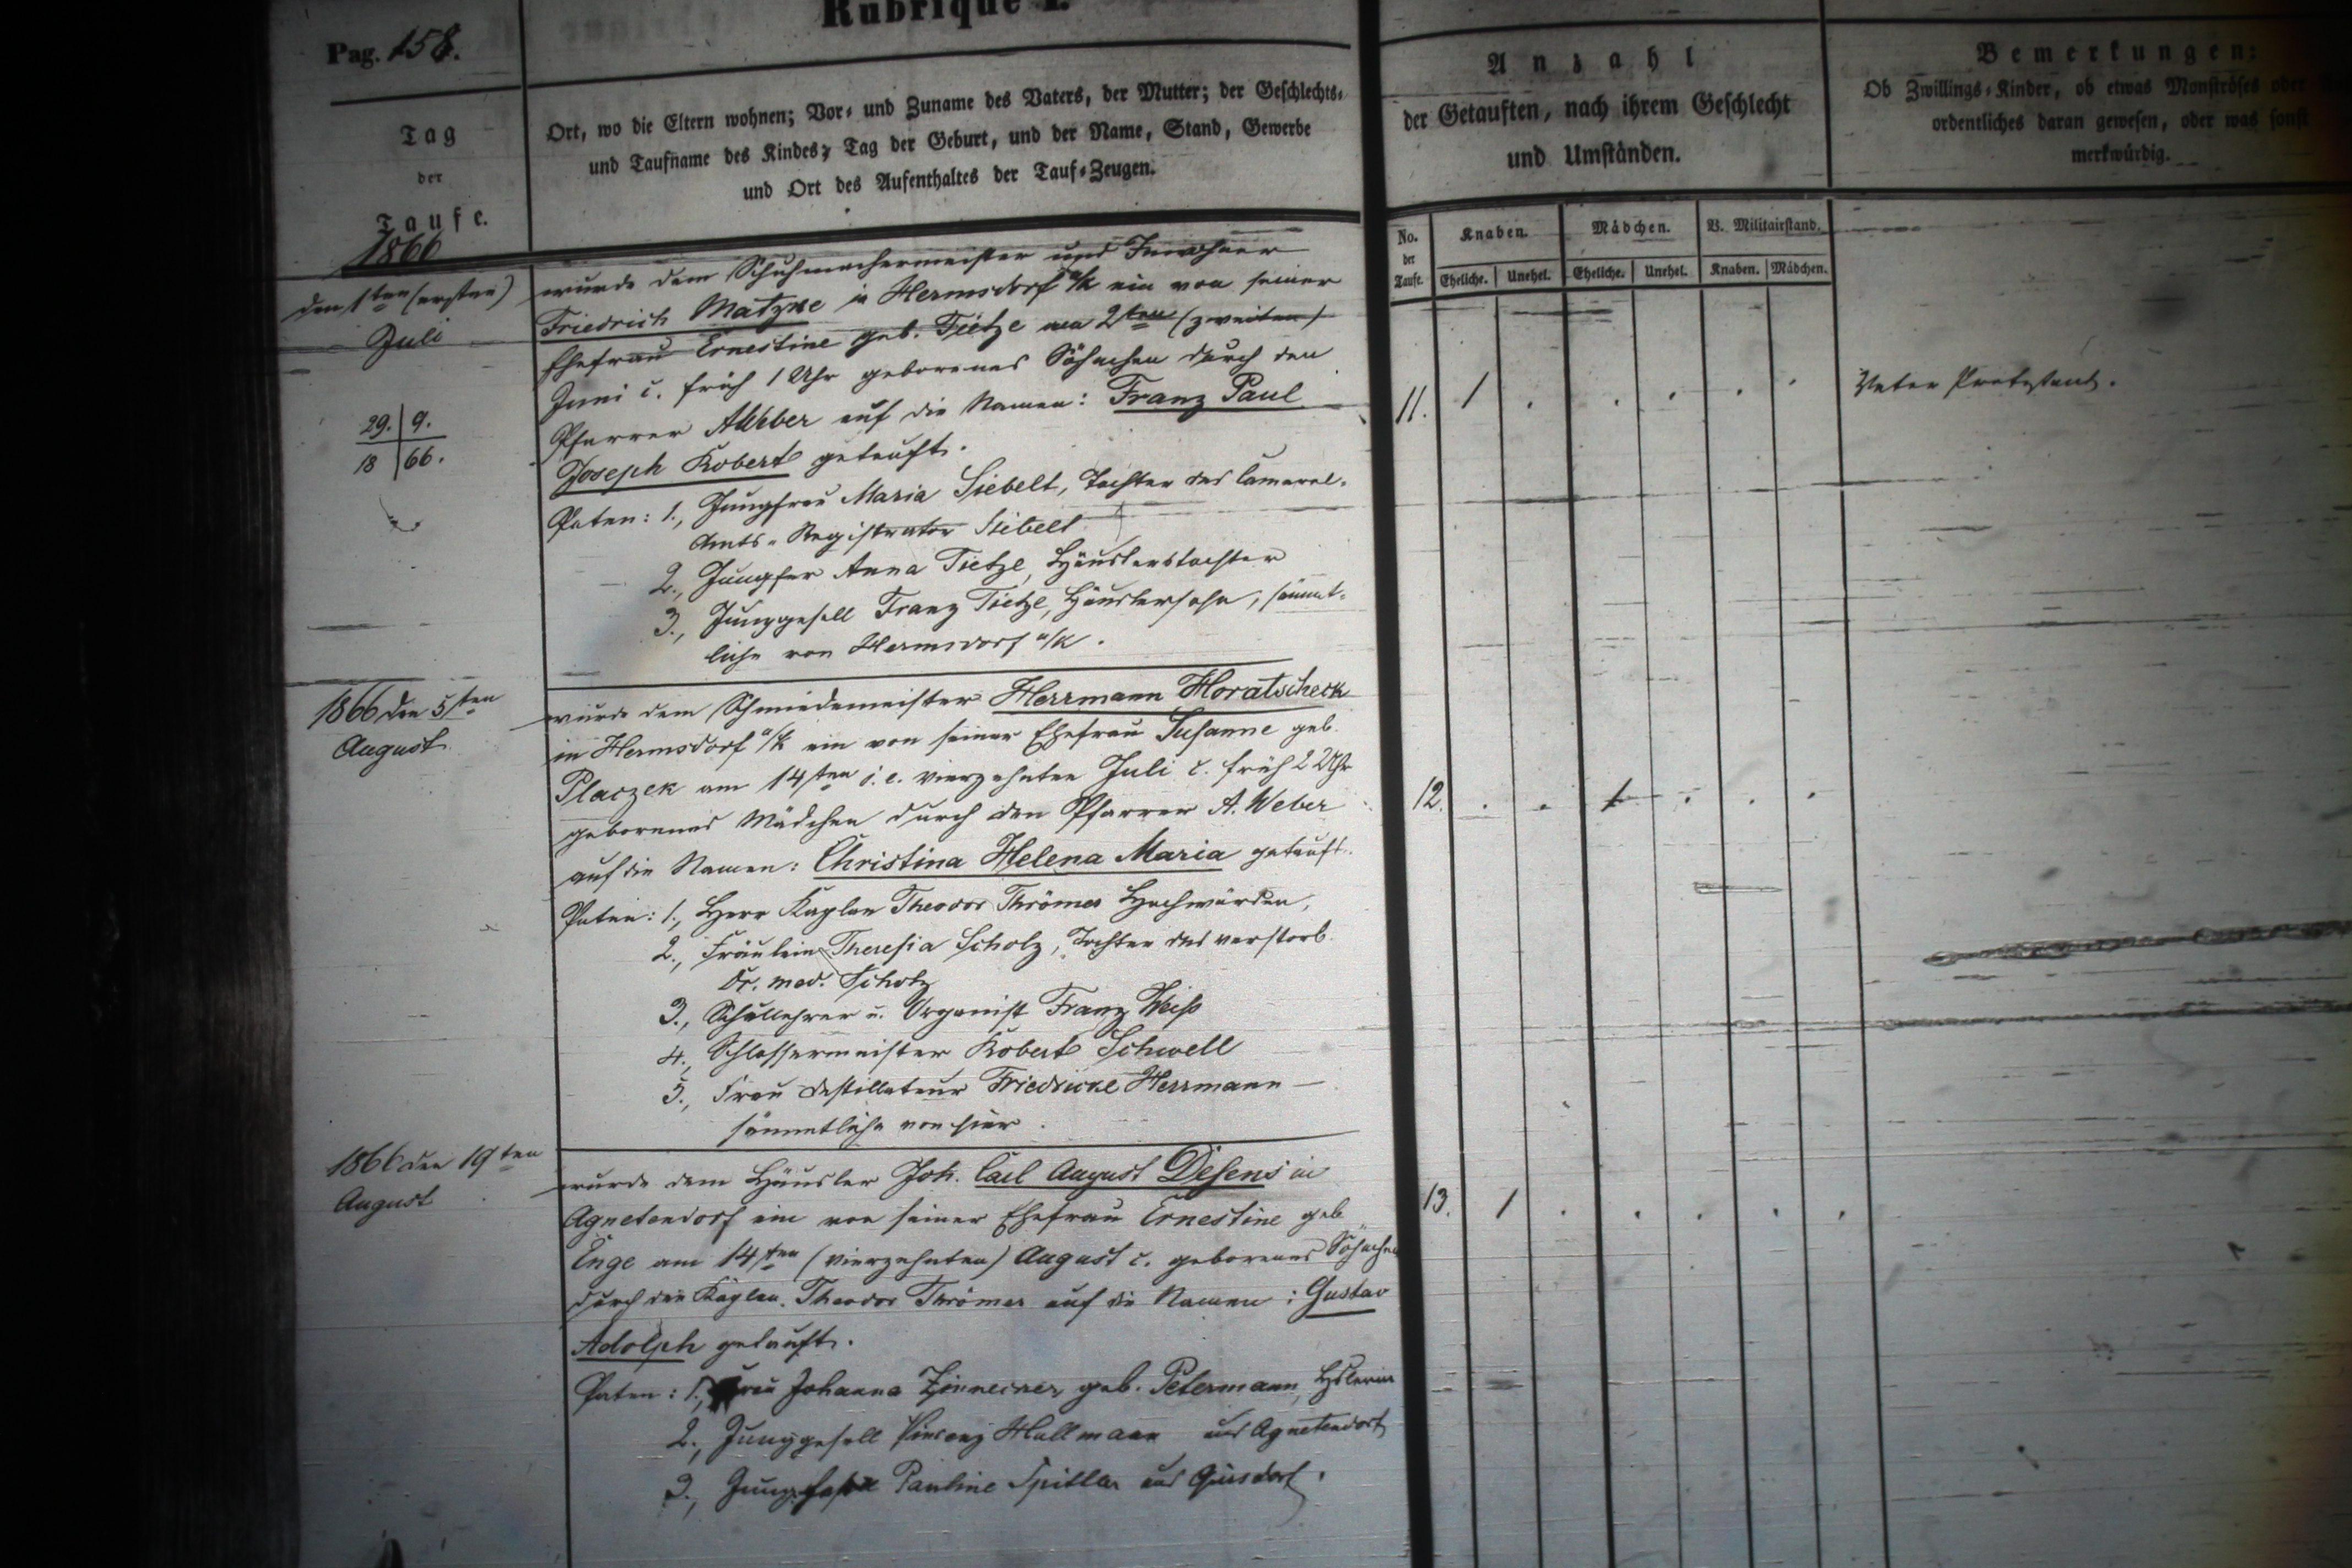 Rubrique I.
Pag. 158.
Tag
der
Taufe.
Ort, wo die Eltern wohnen; Vor- und Zuname des Vaters, der Mutter; der Geschlechts-
und Taufname des Kindes; Tag der Geburt, und der Name, Stand, Gewerbe
und Ort des Aufenthaltes der Tauf-Zeugen.
Anzahl
der Getauften, nach ihrem Geschlecht
und Umständen.
Bemerkungen:
Ob Zwillings-Kinder, ob etwas Monströses oder
ordentliches daran gewesen, oder was sonst
merkwürdig.
No. der Taufe.
Knaben. Mädchen. B. Militairstand.
Eheliche. Unehel. Eheliche. Unehel. Knaben. Mädchen.
1866
den 1ten (ersten)
Juli
29. 9.
18 66.
wurde dem Schuhmachermeister und Inwohner
Friedrich Matzke in Hermsdorf a/k ein von seiner
Ehefrau Ernestine geb. Tietze am 2ten (zweiten)
Juni c. früh 1 Uhr geborenes Söhnchen durch den
Pfarrer AWeber auf die Namen: Franz Paul
Joseph Robert getauft.
11. 1 . . . . .
Vater Protestant.
Paten: 1., Jungfrau Maria Siebelt, Tochter des Cameral-
Amts-Registrator Siebelt
2., Jungfer Anna Tietze, Häuslerstochter
3., Junggesell Franz Tietze, Häuslersohn, sämmt-
liche von Hermsdorf a/k.
1866 den 5ten
August
wurde dem Schmiedemeister Herrmann Horatscheck
in Hermsdorf a/k ein von seiner Ehefrau Susanne geb.
Placzek am 14ten i. e. vierzehnten Juli c. früh 2 Uhr
geborenes Mädchen durch den Pfarrer A. Weber
auf die Namen: Christina Helena Maria getauft.
12. . . 1 . . .
Paten: 1., Herr Kaplan Theodor Thrömer Hochwürden,
2., Fräulein Theresia Scholz, Tochter des verstorb.
Dr. med. Scholz
3., Schullehrer u. Organist Franz Weiß
4., Schlossermeister Robert Schwell
5., Frau Destillateur Friedricke Herrmann —
sämmtliche von hier.
1866 den 19ten
August
wurde dem Häusler Joh. Carl August Desens in
Agnetendorf ein von seiner Ehefrau Ernestine geb
Enge am 14ten (vierzehnten) August c. geborenes Söhnchen
durch den Kaplan Theodor Thrömer auf die Namen: Gustav
Adolph getauft.
13. 1 . . . . .
Paten: 1., Frau Johanna Zinnecker, geb. Petermann, Hslerin
2., Junggesell Vincenz Hallmann aus Agnetendorf
3., Pauline Spittler aus Giersdorf.